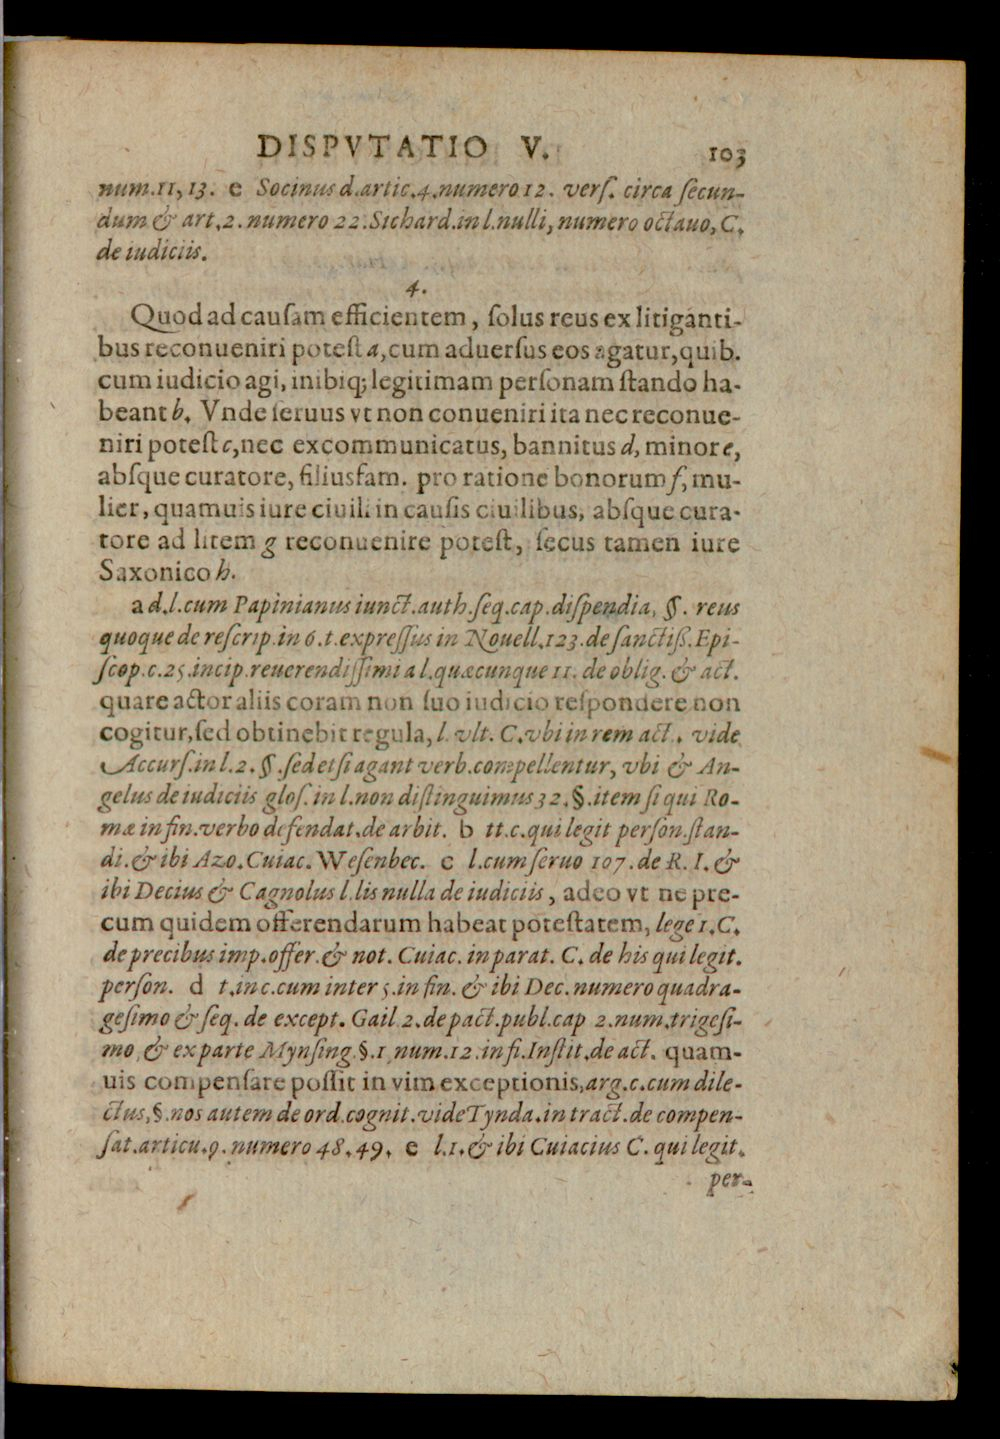 DISPVTATIO V. 103
num.11, 13. e Socinus d.artic.4.numero 12. verſ. circa ſecun-
dum & art.2. numero 22. Sichard.in l.nulli, numero octauo, C.
de iudiciis.
4.
Quod ad cauſam efficientem, ſolus reus ex litiganti-
bus reconueniri poteſt a, cum aduerſus eos agatur, quib.
cum iudicio agi, inibiq; legitimam perſonam ſtando ha-
beant b. Vnde ſeruus vt non conueniri ita nec reconue-
niri poteſt c, nec excommunicatus, bannitus d, minor e,
abſque curatore, filiusfam. pro ratione bonorum f, mu-
lier, quamuis iure ciuili in cauſis ciuilibus, abſque cura-
tore ad litem g reconuenire poteſt, ſecus tamen iure
Saxonico h.
a d.l.cum Papinianus iunct.auth.ſeq.cap.diſpendia, §. reus
quoque de reſcrip.in 6.t.expreſſus in Nouell.123.de ſanctiß.Epi-
ſcop.c.25.incip.reuerendiſſimi a l.quæcunque 11. de oblig. & act.
quare actor aliis coram non ſuo iudicio reſpondere non
cogitur, ſed obtinebit regula, l. vlt. C.vbi in rem act. vide
Accurſ.in l.2.§.ſed et ſi agant verb.compellentur, vbi & An-
gelus de iudiciis gloſ. in l.non diſtinguimus 32.§.item ſi qui Ro-
mæ in fin.verbo defendat.de arbit. b tt.c.qui legit perſon.ſtan-
di.& ibi Azo.Cuiac. Weſenbec. c l.cum ſeruo 107.de R. I. &
ibi Decius & Cagnolus l.lis nulla de iudiciis, adeo vt ne pre-
cum quidem offerendarum habeat poteſtatem, lege 1.C.
de precibus imp.offer.& not. Cuiac. in parat. C. de his qui legit.
perſon. d t.in c.cum inter 5.in fin. & ibi Dec.numero quadra-
geſimo & ſeq. de except. Gail 2.de pact.publ.cap 2.num.trigeſi-
mo, & ex parte Mynſing.§.1 num.12.in fi.Inſtit.de act. quam-
uis compenſare poſſit in vim exceptionis, arg.c.cum dile-
ctus,§.nos autem de ord.cognit.vide Tynda.in tract.de compen-
ſat.articu.9.numero 48.49. e l.1.& ibi Cuiacius C. qui legit.
per-